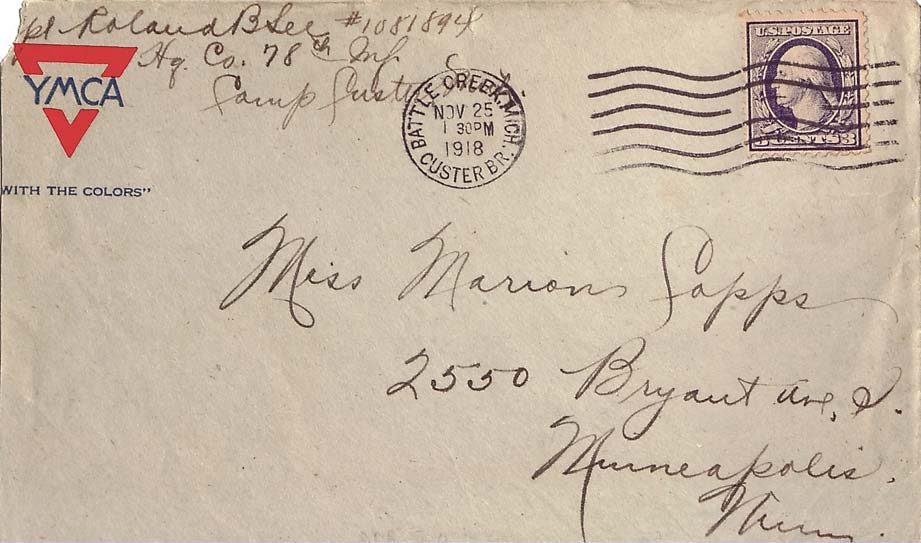 Roland B Lee #1081894
Hq. Co. 78th Inf
Camp Custer
YMCA
WITH THE COLORS"
BATTLE CREEK, MICH.
NOV 25
1 30PM
1918
CUSTER BR.
U.S. POSTAGE
3 CENTS 3
Miss Marion Sapps
2550 Bryant Ave, S.
Minneapolis.
Minn.